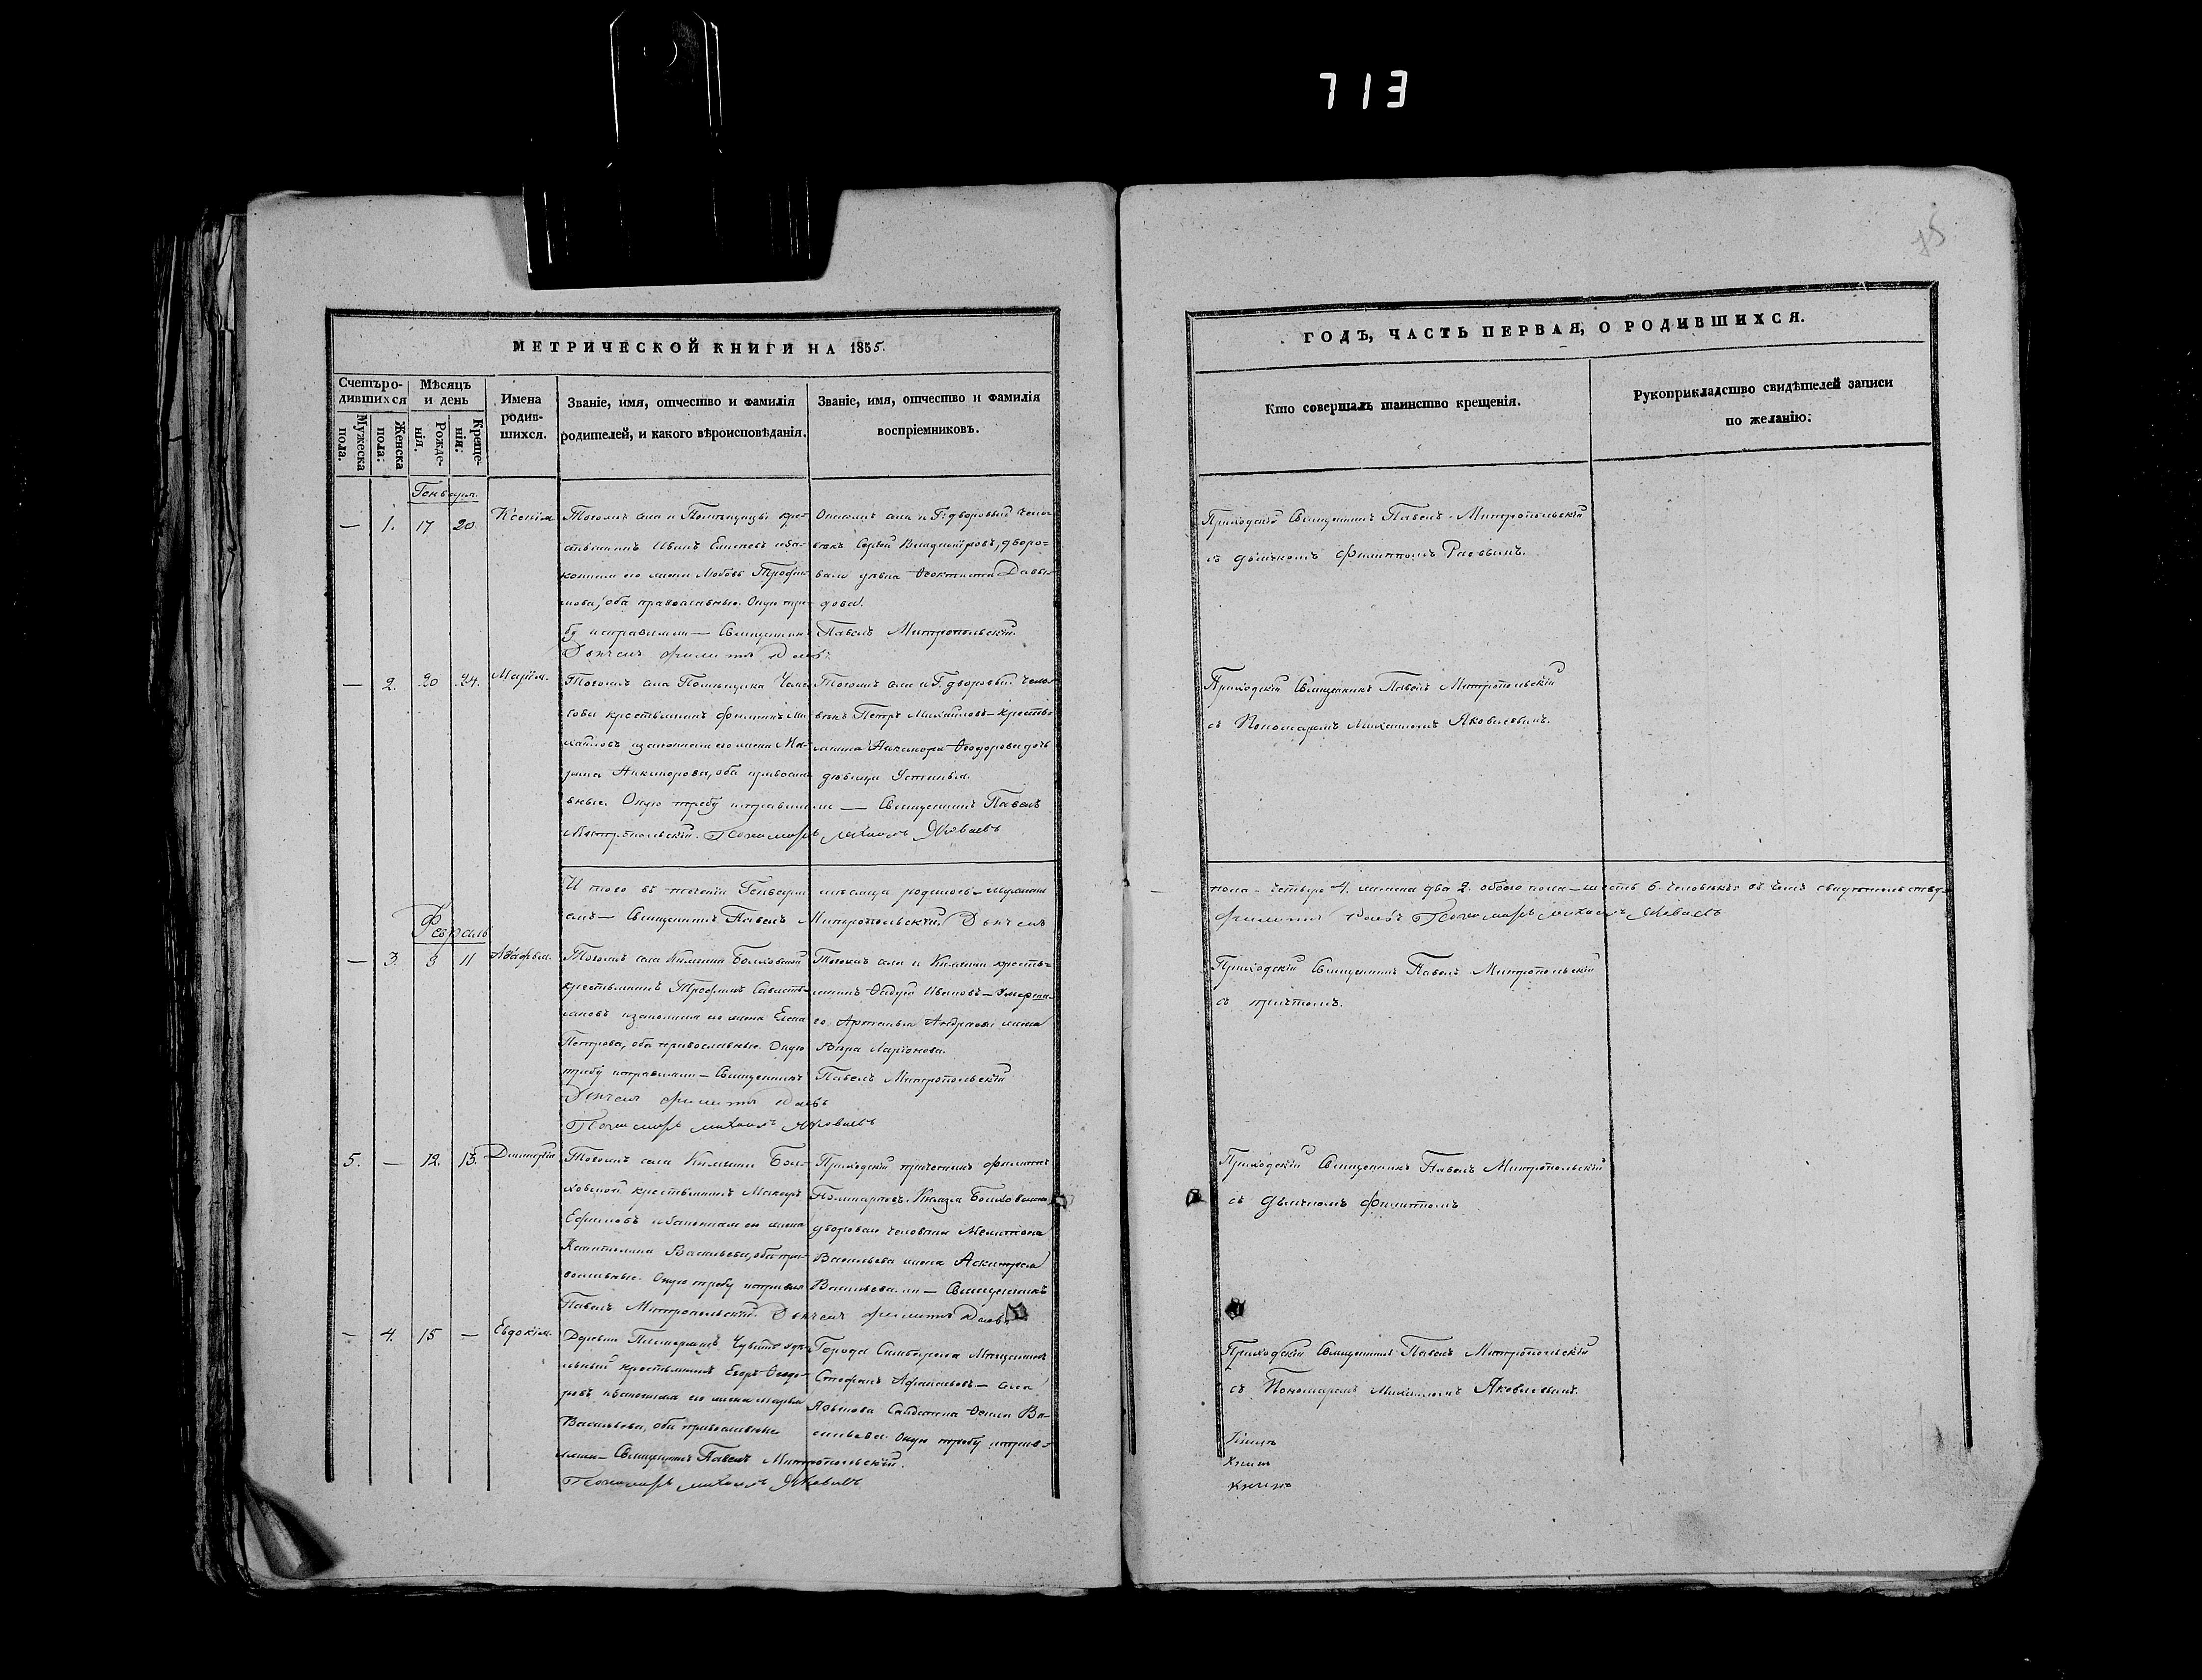 713
75
МЕТРИЧЕСКОЙ КНИГИ НА 1855.
Счетъ ро-
дившихся
Мужеска
пола.
Женска
пола.
Мѣсяцъ
и день
Рожде-
нія.
Креще-
нія.
Имена
родив-
шихся.
Званіе, имя, отчество и фамилія
родителей, и какого вѣроисповѣданія.
Званіе, имя, отчество и фамилія
воспріемниковъ.
Генваря.
— 1. 17 20.
Ксенія
Тогожъ села
крестьянинъ Иванъ
конная его жена Любовь Трофи-
мова, оба православные. Оную тре-
бу исправляли — Священникъ
Дьячекъ
села и Г. дворовый чело-
вѣкъ Сергѣй Владиміровъ, дворо-
вая Феоктиста Давы-
дова.
Павелъ Митропольскій.
— 2. 20 24.
Марія.
Тогожъ села Помѣщика
крестьянинъ Филиппъ Ми-
хайловъ и законная его жена Ма-
Никифорова, оба православ-
ные. Оную требу исправляли — Священникъ Павелъ
Митропольскій. Пономарь Михаилъ Яковлевъ
Тогожъ села и Г. дворовый чело-
вѣкъ Петръ Михайловъ — крестья-
Феодорова дочь
дѣвица Устинья.
Итого въ теченіи Генваря мѣсяца родилось — мужеска
емъ — Священникъ Павелъ Митропольскій. Дьячекъ
Февраль
— 3. 9 11
Агафья.
Тогожъ села Княгини Болховской
крестьянинъ Трофимъ Савасть-
яновъ и законная его жена Елена
Петрова, оба православные. Оную
требу исправляли — Священникъ
Дьячекъ
Пономарь Михаилъ Яковлевъ
Тогожъ села и Княгини кресть-
янинъ Ивановъ — умерша-
го Артемья Андреева жена
Вѣра Ларіонова.
Павелъ Митропольскій
5. — 12. 13.
Димитрій
Тогожъ села Княгини Бол-
ховской крестьянинъ Макаръ
Ефимовъ и законная его жена
Васильева, оба пра-
вославные. Оную требу исправля
Павелъ Митропольскій. Дьячекъ
Приходскій причетникъ Филиппъ
Князя Болховскаго
двороваго человѣка Мелитона
Васильева жена
Васильева. ли — Священникъ
— 4. 15 —
Евдокія.
Деревни удѣ-
льный крестьянинъ Егоръ Феодо-
ровъ и законная его жена Марья
Васильева, оба православные
ляли — Священникъ Павелъ Митропольскій.
Пономарь Михаилъ Яковлевъ
Города Симбирска Мѣщанинъ
Стефанъ — села
Солдатка Ва-
сильева. Оную требу исправ-
ГОДЪ, ЧАСТЬ ПЕРВАЯ, О РОДИВШИХСЯ.
Кто совершалъ таинство крещенія.
Рукоприкладство свидѣтелей записи
по желанію.
Приходскій Священникъ Павелъ Митропольскій
съ дьячкомъ Филиппомъ
Приходскій Священникъ Павелъ Митропольскій
съ Пономаремъ Михаиломъ Яковлевымъ.
пола — четыре 4. женска два 2. обоего пола — шесть 6. человѣкъ въ чемъ свидѣтельству-
Пономарь Михаилъ Яковлевъ
Приходскій Священникъ Павелъ Митропольскій
съ причтомъ.
Приходскій Священникъ Павелъ Митропольскій
съ дьячкомъ Филиппомъ
Приходскій Священникъ Павелъ Митропольскій
съ Пономаремъ Михаиломъ Яковлевымъ.